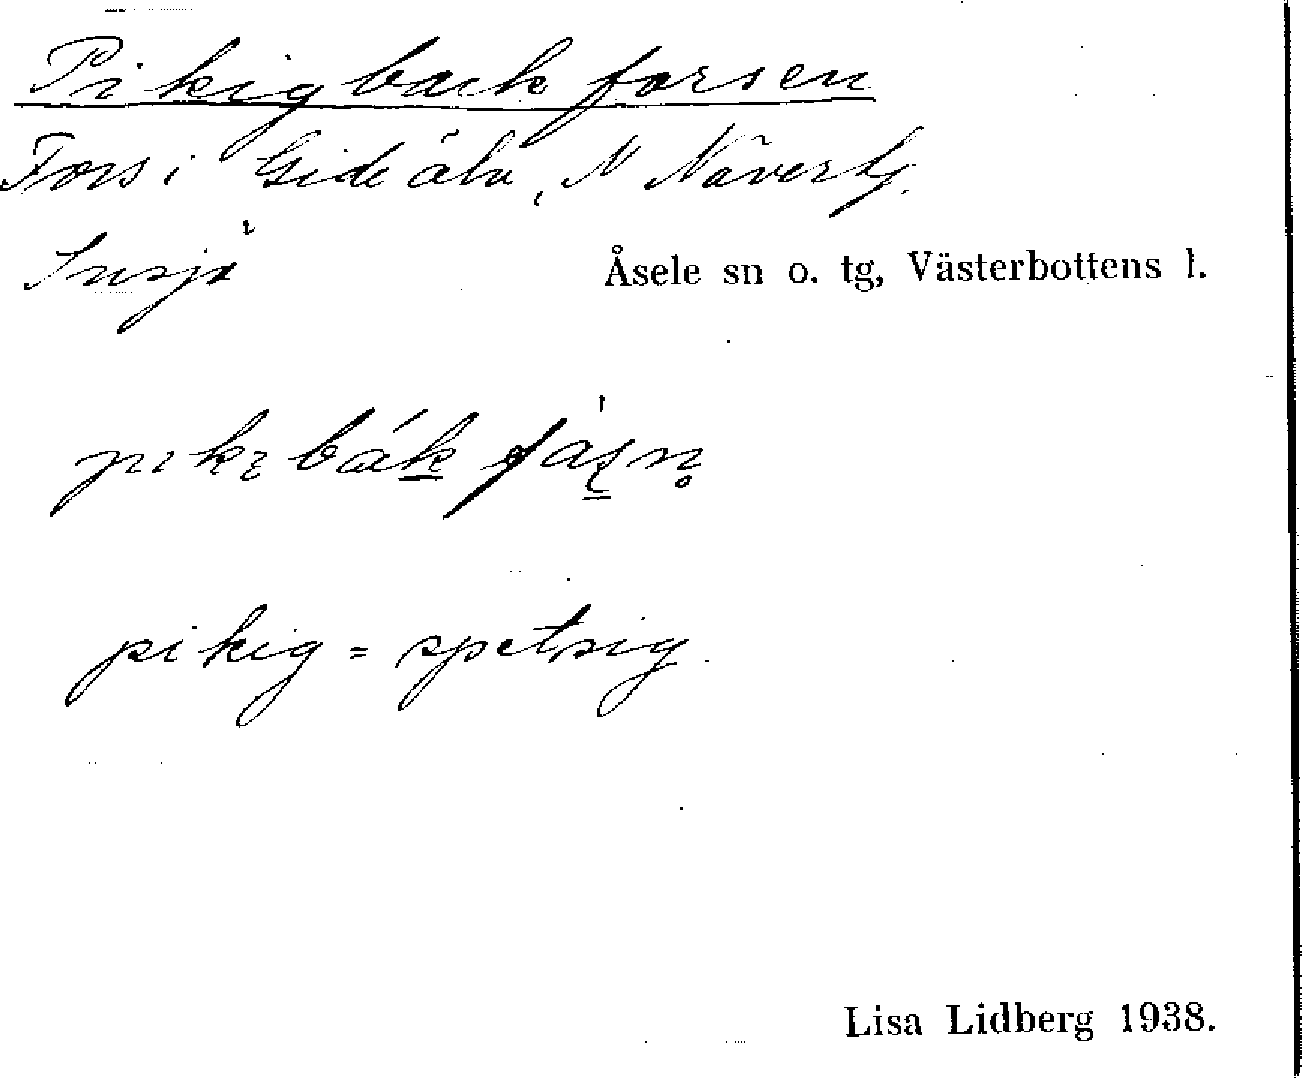 Pikigbackforsen
Fors i Gideälv, N Näverbg.
Insjö
Åsele sn o. tg, Västerbottens l.
pikigbákfàṣṇ
pikig = spetsig.
Lisa Lidberg 1938.